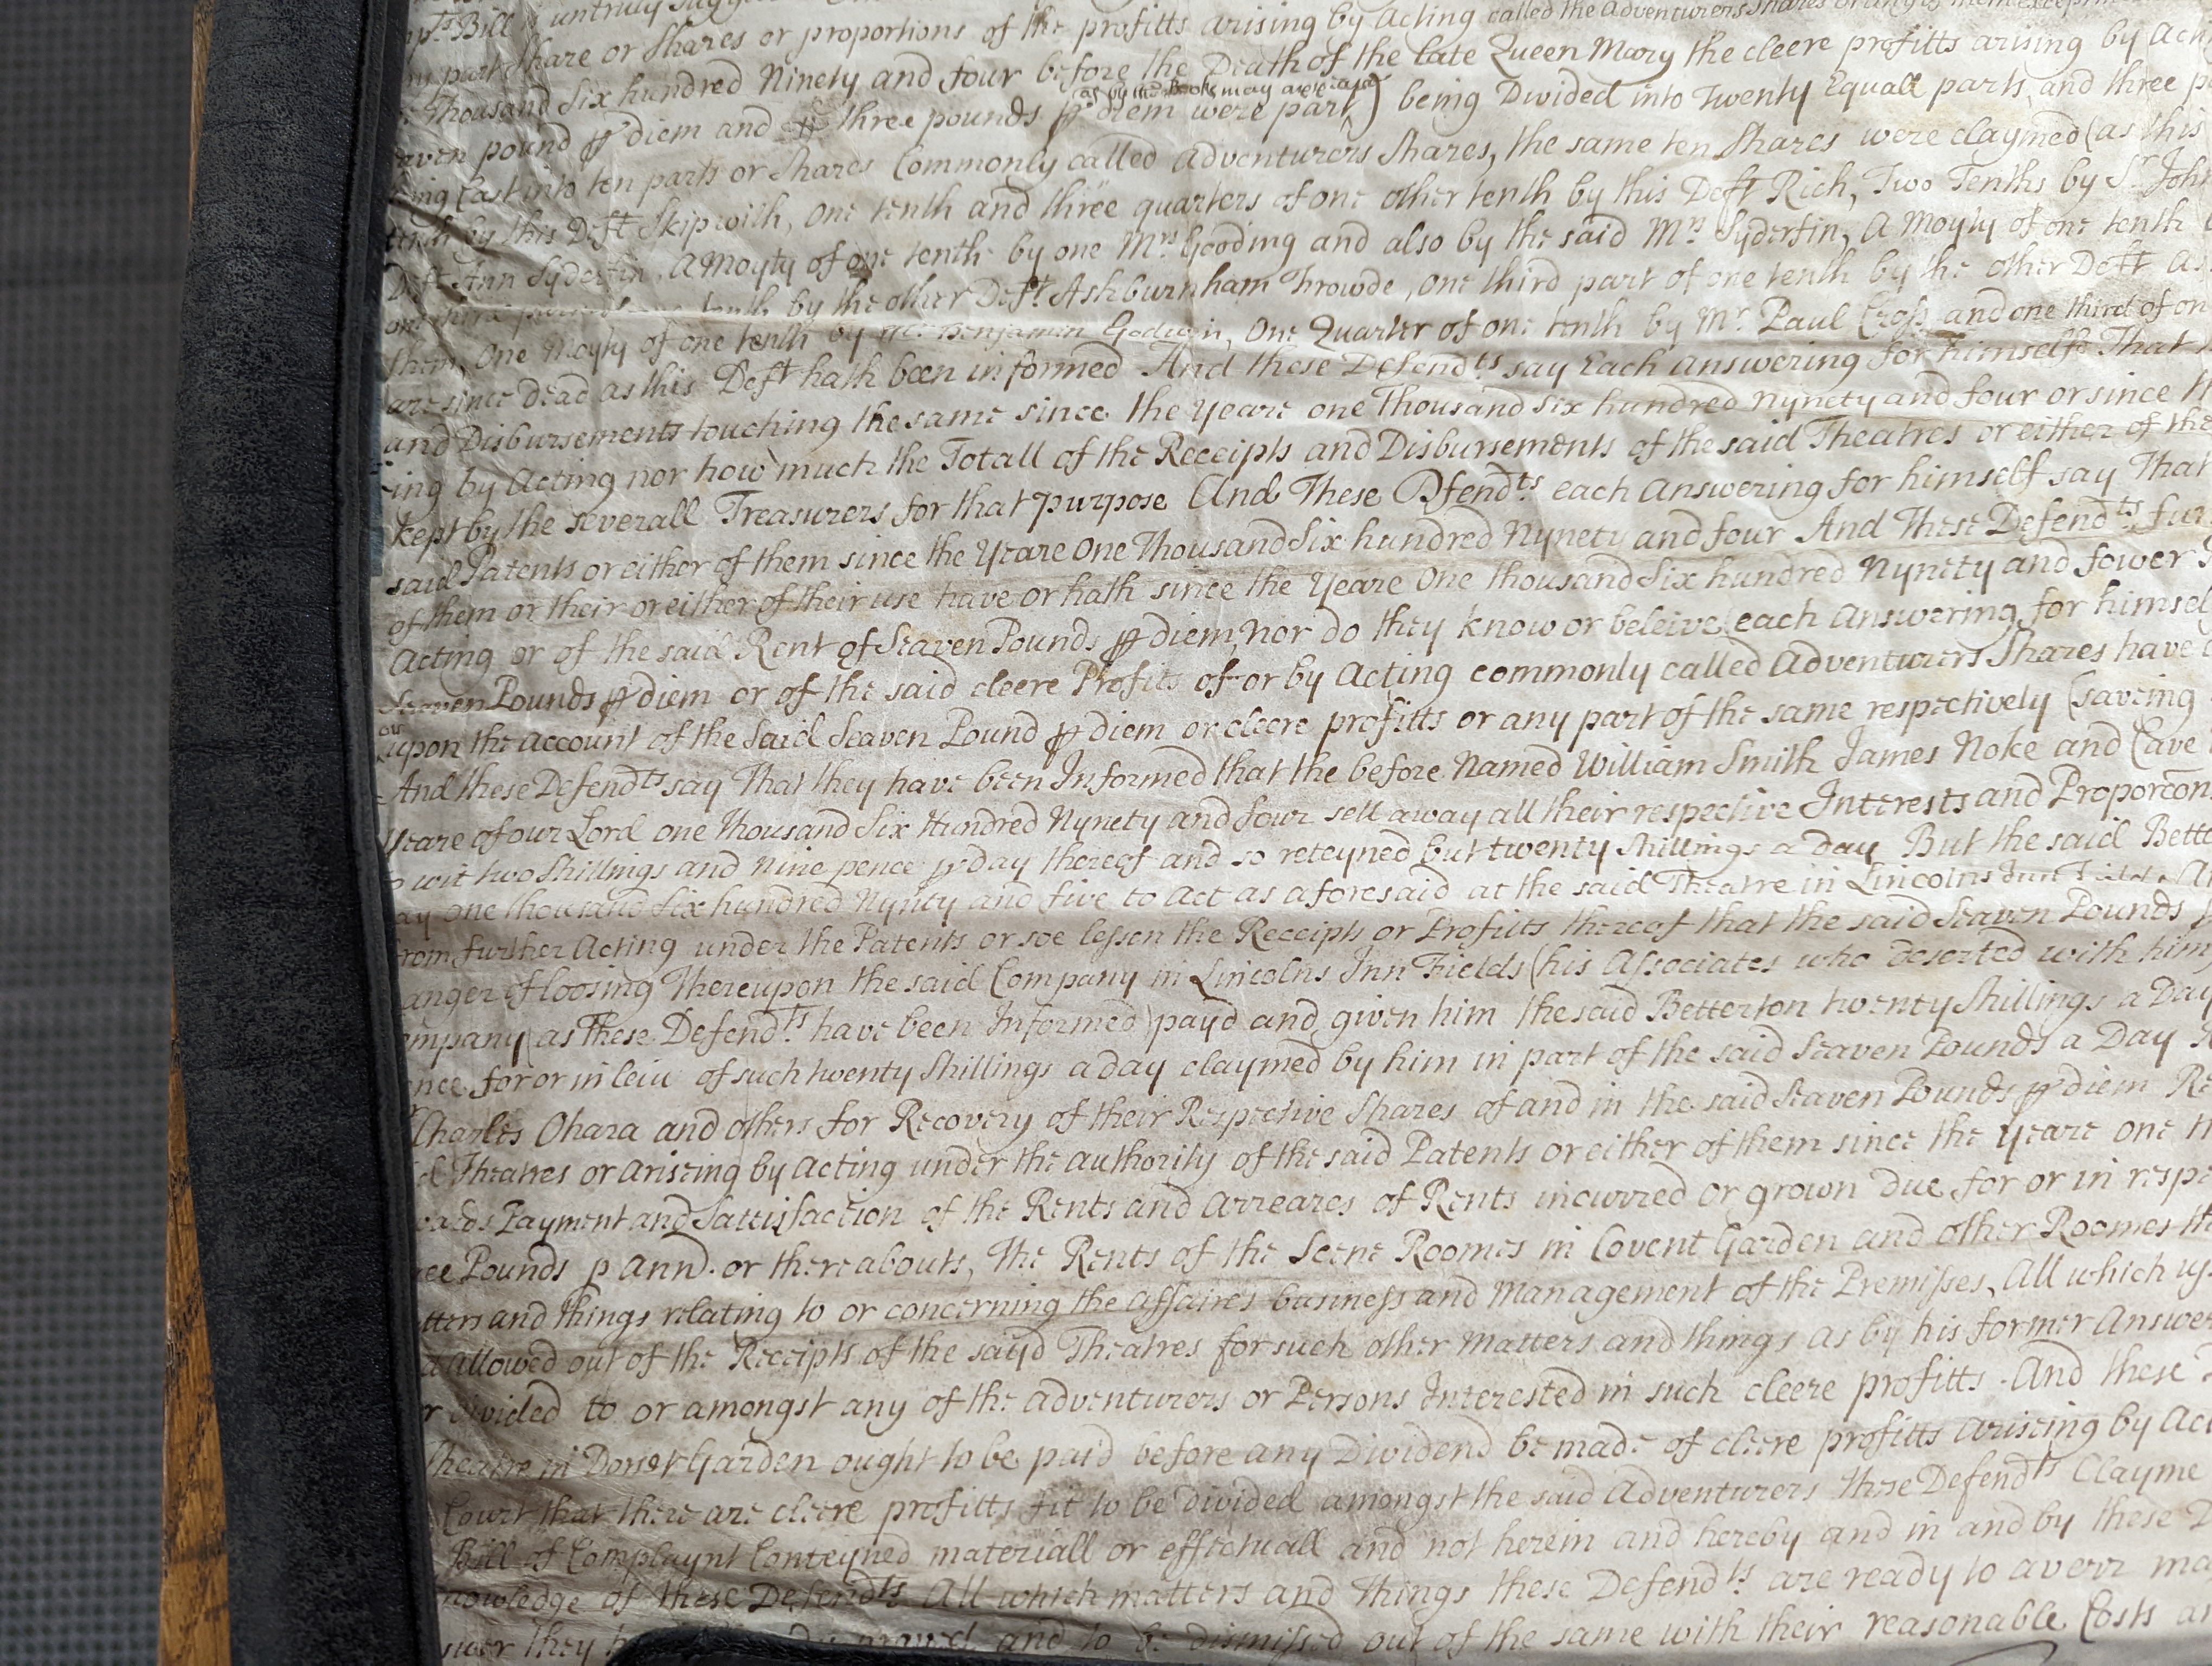 pts. Bill is untruly sugg called the Adventurers Shares or any of them except
part share or shares or proportions of the profitts arising by Acting
Thousand Six hundred Ninety and four before the Death of the late Queen Mary the cleere profitts arising by Act
as by the Books may appeare
aven pound ꝑ diem and three pounds ꝑ diem were part) being Divided into Twenty Equall parts and three p
ing Cast into ten parts or Shares Commonly called Adventurers Shares, the same ten Shares were claymed (as this
tenth by this Deft. Skipwith, one tenth and three quarters of one other tenth by this Deft Rich, Two Tenths by Sr. John
Deft. Ann Syderfin, A Moyty of one tenth by one Mrs. Gooding and also by the said Mrs. Syderfin, A Moyty of one tenth
one third tenth by the other Deft. Ashburnham Frowde, one third part of one tenth by the other Deft As
them, One Moyty of one tenth by Mr. Benjamin Godwin, One Quarter of one tenth by Mr. Paul Cross and one third of on
are since dead as this Deft hath been informed And these Defendts say Each answering for himselfe That
and Disbursements touching the same since the Yeare one Thousand Six hundred Nynety and four or since
ing by Acting nor how much the Totall of the Receipts and Disbursements of the said Theatres or either of the
kept by the severall Treasurers for that purpose And These Dfendts. each Answering for himself say That
said Patents or either of them since the Yeare One Thousand Six hundred Nynety and four And These Defendts. fur
of them or their or either of their use have or hath since the Yeare One thousand Six hundred Nynety and fower
Acting or of the said Rent of Seaven Pounds ꝑ diem, nor do they know or beleive each Answering for himsel
Seaven Pounds ꝑ diem or of the said cleere Profits of or by Acting commonly called Adventurers Shares have
or
upon the Account of the Said Seaven Pound ꝑ diem or cleere profitts or any part of the same respectively (saveing
And these Defendts say That they have been Informed that the before Named William Smith James Noke and Cave
Yeare of our Lord one Thousand Six Hundred Nynety and four sell away all their respective Interests and Proporcon
to wit two Shillings and Nine pence ꝑ day thereof and so reteyned but twenty Shillings a Day But the said Bette
ay one thousand Six hundred Nynty and five to Act as aforesaid at the said Theatre in Lincolns Inn Fields
from further Acting under the Patents or soe lessen the Receipts or Profitts thereof that the said Seaven Pounds
anger of loosing Thereupon the said Company in Lincolns Inn Fields (his Associates who deserted with him
ompany (as These Defendts. have been Informed) payd and given him the said Betterton twenty Shillings a Day
nce for or in leiu of such twenty Shillings a day claymed by him in part of the said Seaven Pounds a Day
Charles Ohara and others for Recovery of their Respective Shares of and in the said Seaven Pounds ꝑ diem Re
d Theatres or Ariseing by Acting under the Authority of the said Patents or either of them since the Yeare one
wards Payment and Sattisfaction of the Rents and Arreares of Rents incurred or grown due for or in respe
ee Pounds p Ann. or thereabouts, The Rents of the Scene Roomes in Covent Garden and other Roomes
tters and things relating to or concerning the Affaires business and Management of the Premisses, All which
allowed out of the Receipts of the said Theatres for such other Matters and things as by his former Answer
divided to or amongst any of the Adventurers or Persons Interested in such cleere profitts. And these
Theatre in Dorset Garden ought to be paid before any Dividend be made of cleere profitts Ariseing by Act
Court that there are cleere profitts fit to be divided amongst the said Adventurers these Defendts Clayme
Bill of Complaynt Conteyned materiall or effectuall and not herein and hereby and in and by these
nowledge of these Defendts. All which matters and things these Defendts. are ready to averr
swer they prayed and to be dismissed out of the same with their reasonable Costs